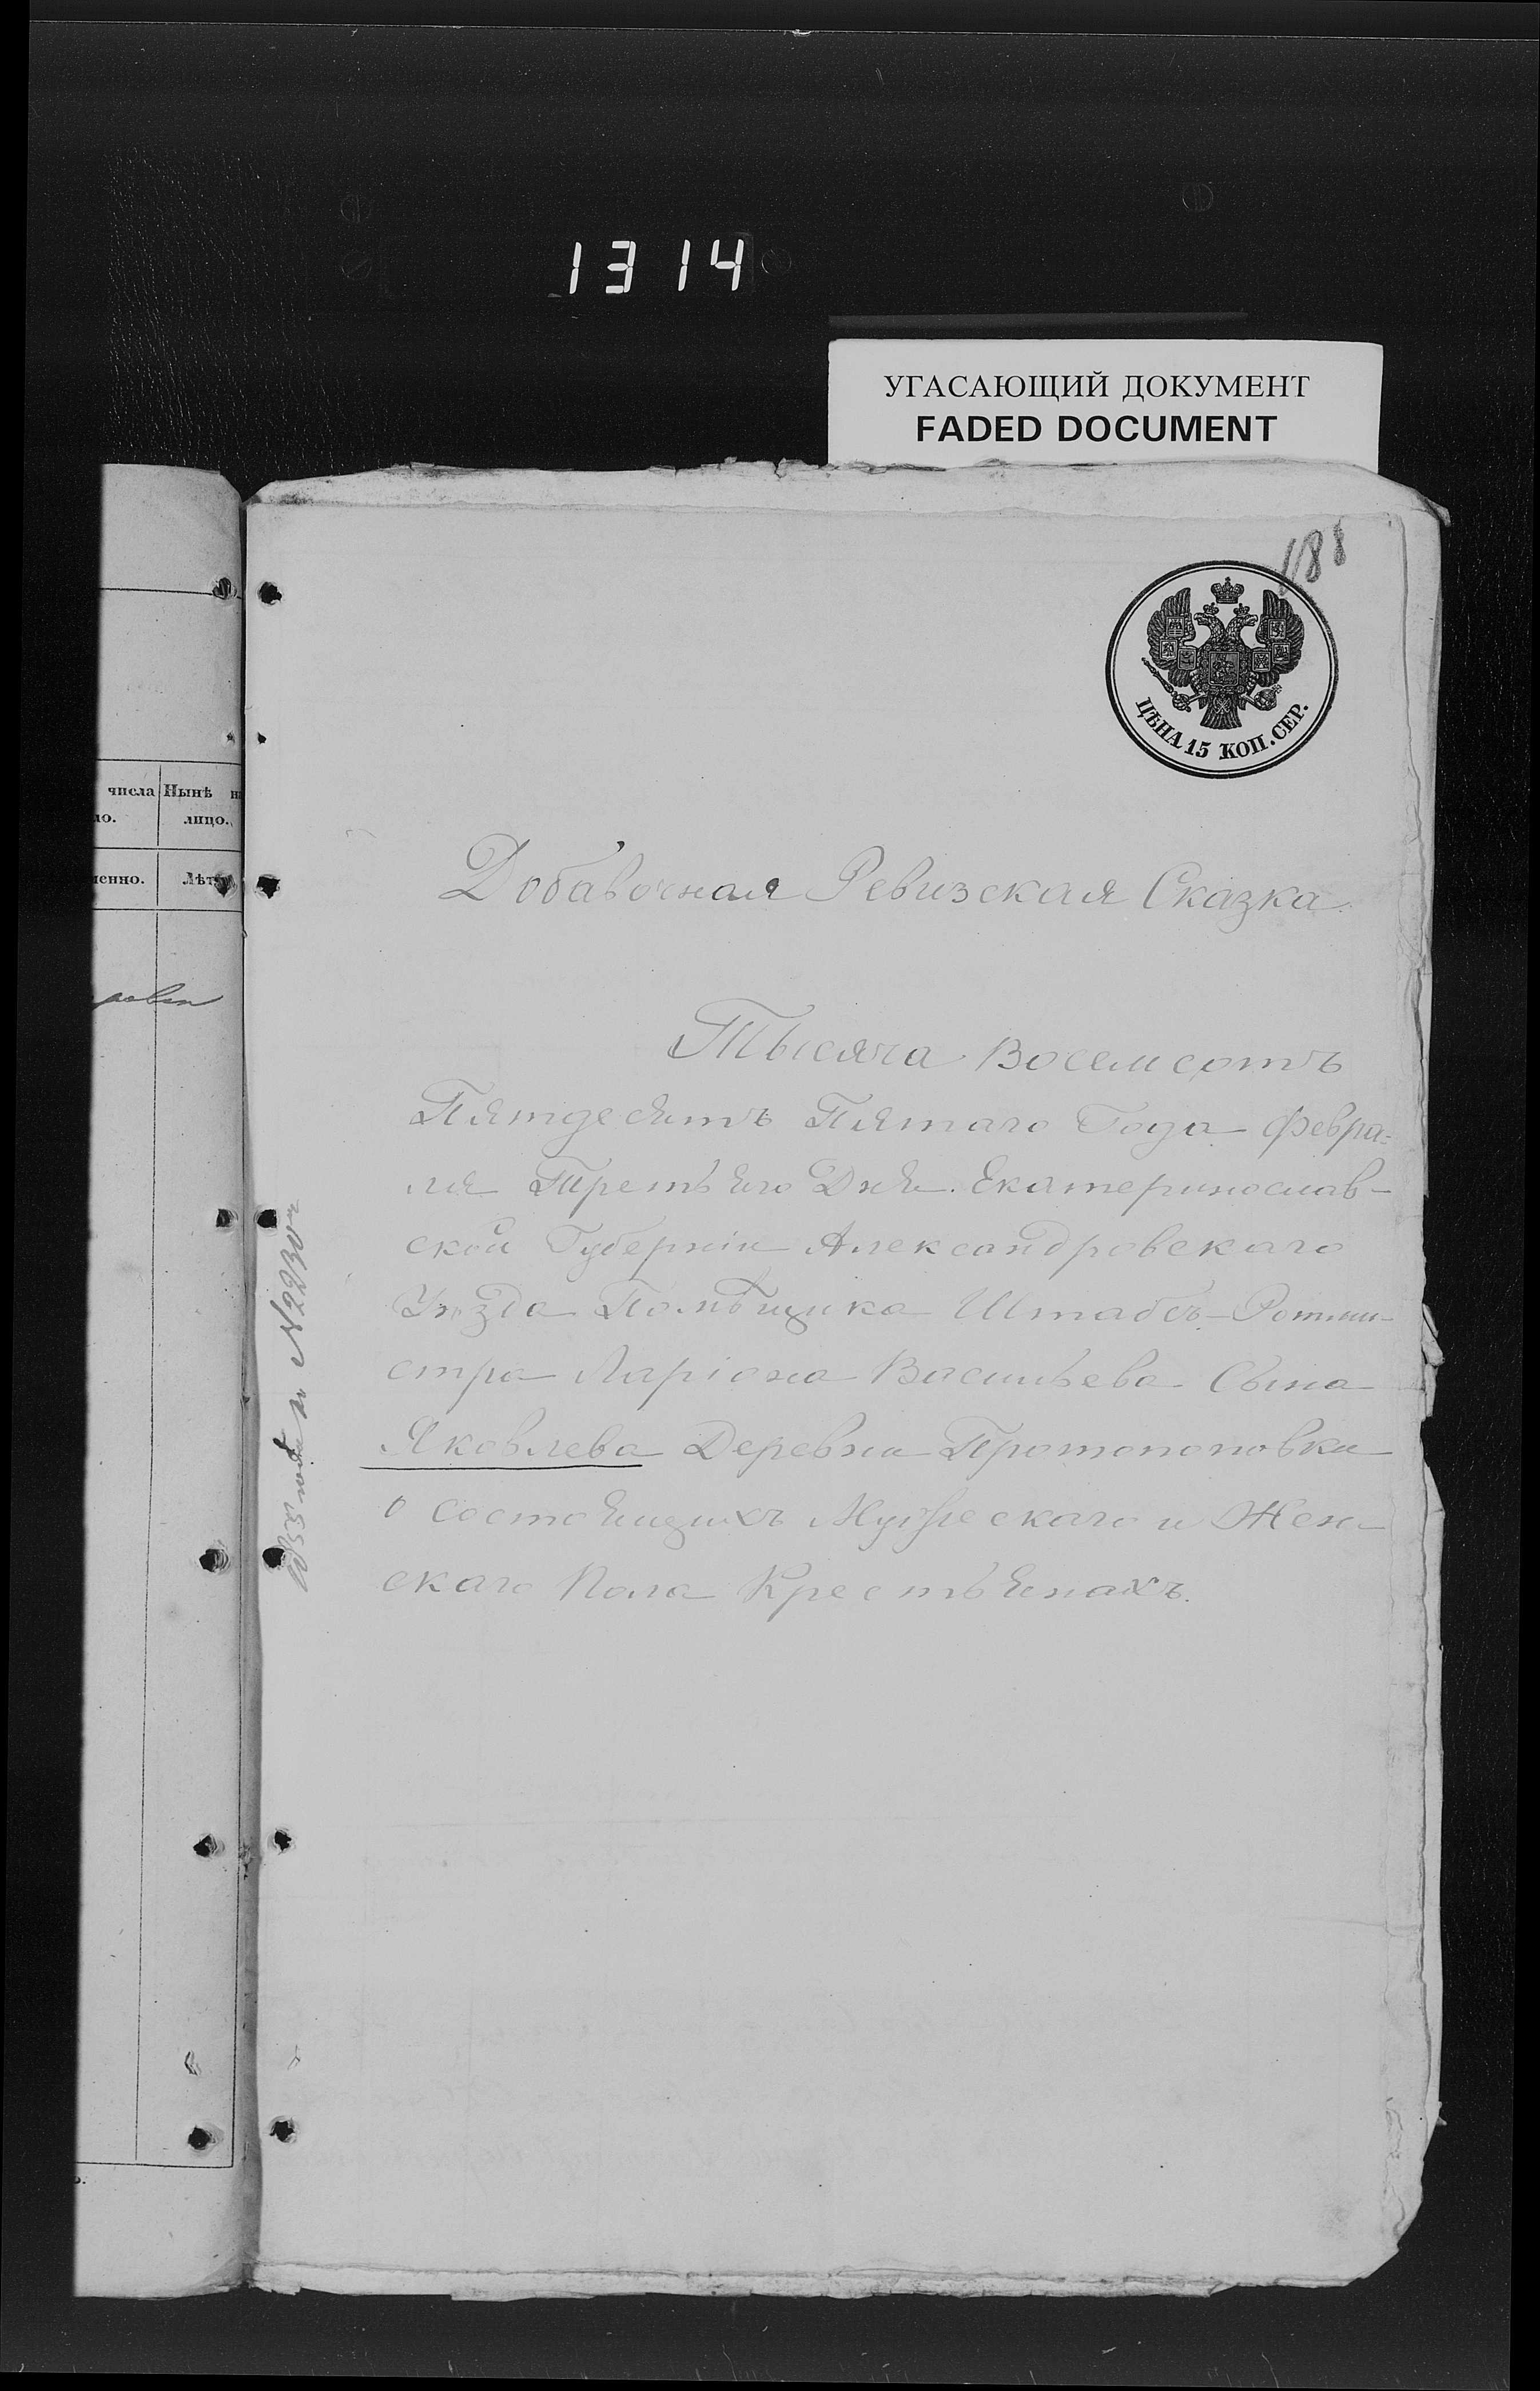 1314
УГАСАЮЩИЙ ДОКУМЕНТ
FADED DOCUMENT
188
ЦѢНА 15 КОП. СЕР.
числа Нынѣ
лицо.
Добавочная Ревизская Сказка.
Тысяча Восемсотъ
Пятдесятъ Пятаго Года Февра=
ля Третьяго Дня. Екатеринослав-
ской Губерніи Александровскаго
Уѣзда Помѣщика Штабсъ-Ротми-
стра Ларіона Васильева Сына
Яковлева Деревни Протопоповки
о состоящихъ Мужескаго и Жен-
скаго Пола Крестьянахъ.